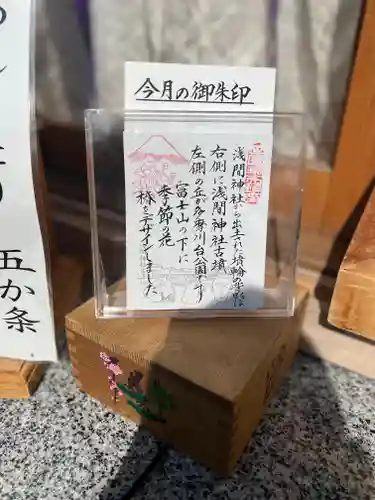 今月の御朱印
浅間神社から出土された埴輪
右側に浅間神社古墳
左側の丘が多摩川台公園です
富士山の下に
季節の花
椿をデザインしました
五か条